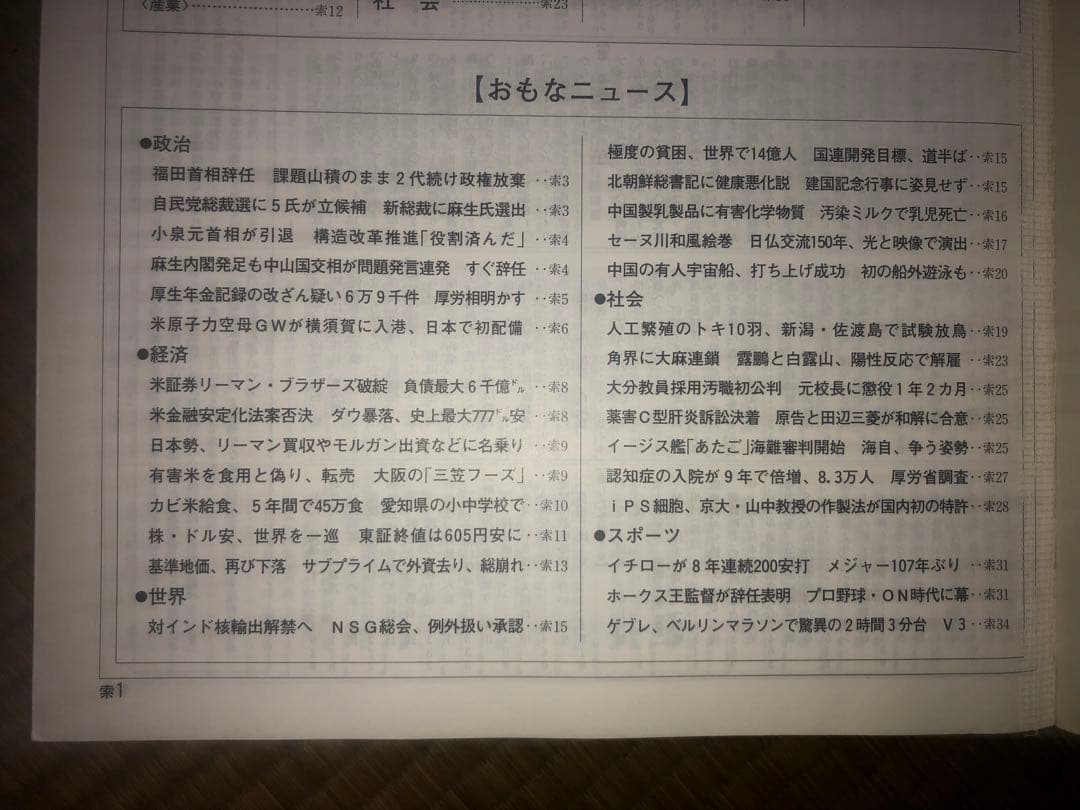 〈産業〉……………………索12
社　会 ………………索23
【おもなニュース】
●政治
福田首相辞任　課題山積のまま２代続け政権放棄 ‥索3
自民党総裁選に５氏が立候補　新総裁に麻生氏選出 ‥索3
小泉元首相が引退　構造改革推進「役割済んだ」‥索4
麻生内閣発足も中山国交相が問題発言連発　すぐ辞任 ‥索4
厚生年金記録の改ざん疑い６万９千件　厚労相明かす ‥索5
米原子力空母ＧＷが横須賀に入港、日本で初配備 ‥索6
●経済
米証券リーマン・ブラザーズ破綻　負債最大６千億㌦ ‥索8
米金融安定化法案否決　ダウ暴落、史上最大777㌦安 ‥索8
日本勢、リーマン買収やモルガン出資などに名乗り ‥索9
有害米を食用と偽り、転売　大阪の「三笠フーズ」‥索9
カビ米給食、５年間で45万食　愛知県の小中学校で‥索10
株・ドル安、世界を一巡　東証終値は605円安に‥索11
基準地価、再び下落　サブプライムで外資去り、総崩れ‥索13
●世界
対インド核輸出解禁へ　ＮＳＧ総会、例外扱い承認‥索15
極度の貧困、世界で14億人　国連開発目標、道半ば‥索15
北朝鮮総書記に健康悪化説　建国記念行事に姿見せず‥索15
中国製乳製品に有害化学物質　汚染ミルクで乳児死亡‥索16
セーヌ川和風絵巻　日仏交流150年、光と映像で演出‥索17
中国の有人宇宙船、打ち上げ成功　初の船外遊泳も‥索20
●社会
人工繁殖のトキ10羽、新潟・佐渡島で試験放鳥‥索19
角界に大麻連鎖　露鵬と白露山、陽性反応で解雇‥索23
大分教員採用汚職初公判　元校長に懲役１年２カ月‥索25
薬害Ｃ型肝炎訴訟決着　原告と田辺三菱が和解に合意‥索25
イージス艦「あたご」海難審判開始　海自、争う姿勢‥索25
認知症の入院が９年で倍増、8.3万人　厚労省調査‥索27
ｉＰＳ細胞、京大・山中教授の作製法が国内初の特許‥索28
●スポーツ
イチローが８年連続200安打　メジャー107年ぶり ‥索31
ホークス王監督が辞任表明　プロ野球・ＯＮ時代に幕‥索31
ゲブレ、ベルリンマラソンで驚異の２時間３分台　Ｖ３‥索34
索1